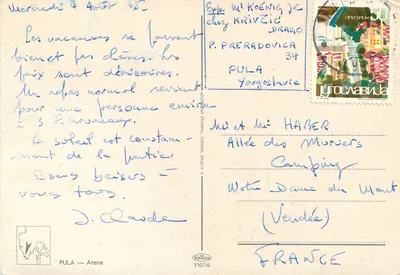 Mercredi 7 Août 85
Les vacances se passent
bien et pas chères. Les
prix sont dérisoires.
Un repas normal revient
pour une personne environ
à 3 F. nouveaux.
Le soleil est constam-
ment de la partie.
Bons baisers à
vous tous.
J. Claude
PULA — Arena
Exp: Mr KOENIG J.C
chez KRIVČIĆ
DRAGO
P. PRERADOVICA
34
PULA
Yougoslavie
ЈУГОСЛАВИЈА
Mr et Me HABER
Allée des Muriers
Camping
Notre Dame du Mont
(Vendée)
FRANCE